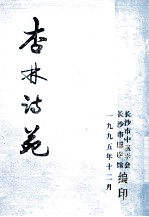 杏林诗苑
长沙市中医学会
长沙市图书馆
编印
一九九五年十二月